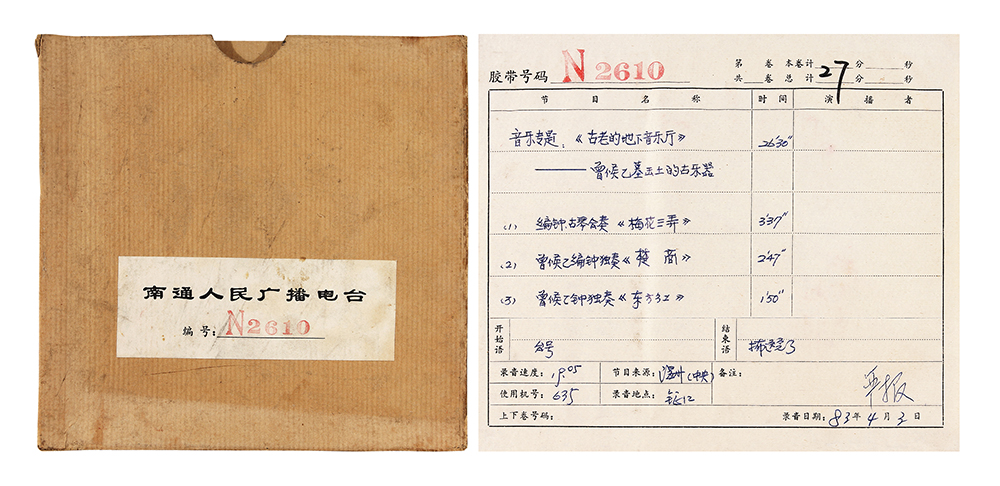 南通人民广播电台
编号:N2610
胶带号码 N 2610
第 卷 本卷计 分 秒
共 卷 总计 27 分 秒
节目名称 时间 演播者
音乐专题:《古老的地下音乐厅》 26'30"
——曾侯乙墓出土的古乐器
(1) 编钟、古琴合奏《梅花三弄》 3'37"
(2) 曾侯乙编钟独奏《楚商》 2'47"
(3) 曾侯乙钟独奏《东方红》 1'50"
开始语 台号 结束语
录音速度: 19.05 节目来源: (中央) 备注:
使用机号: 635 录音地点:
上下卷号码: 录音日期: 83年4月3日